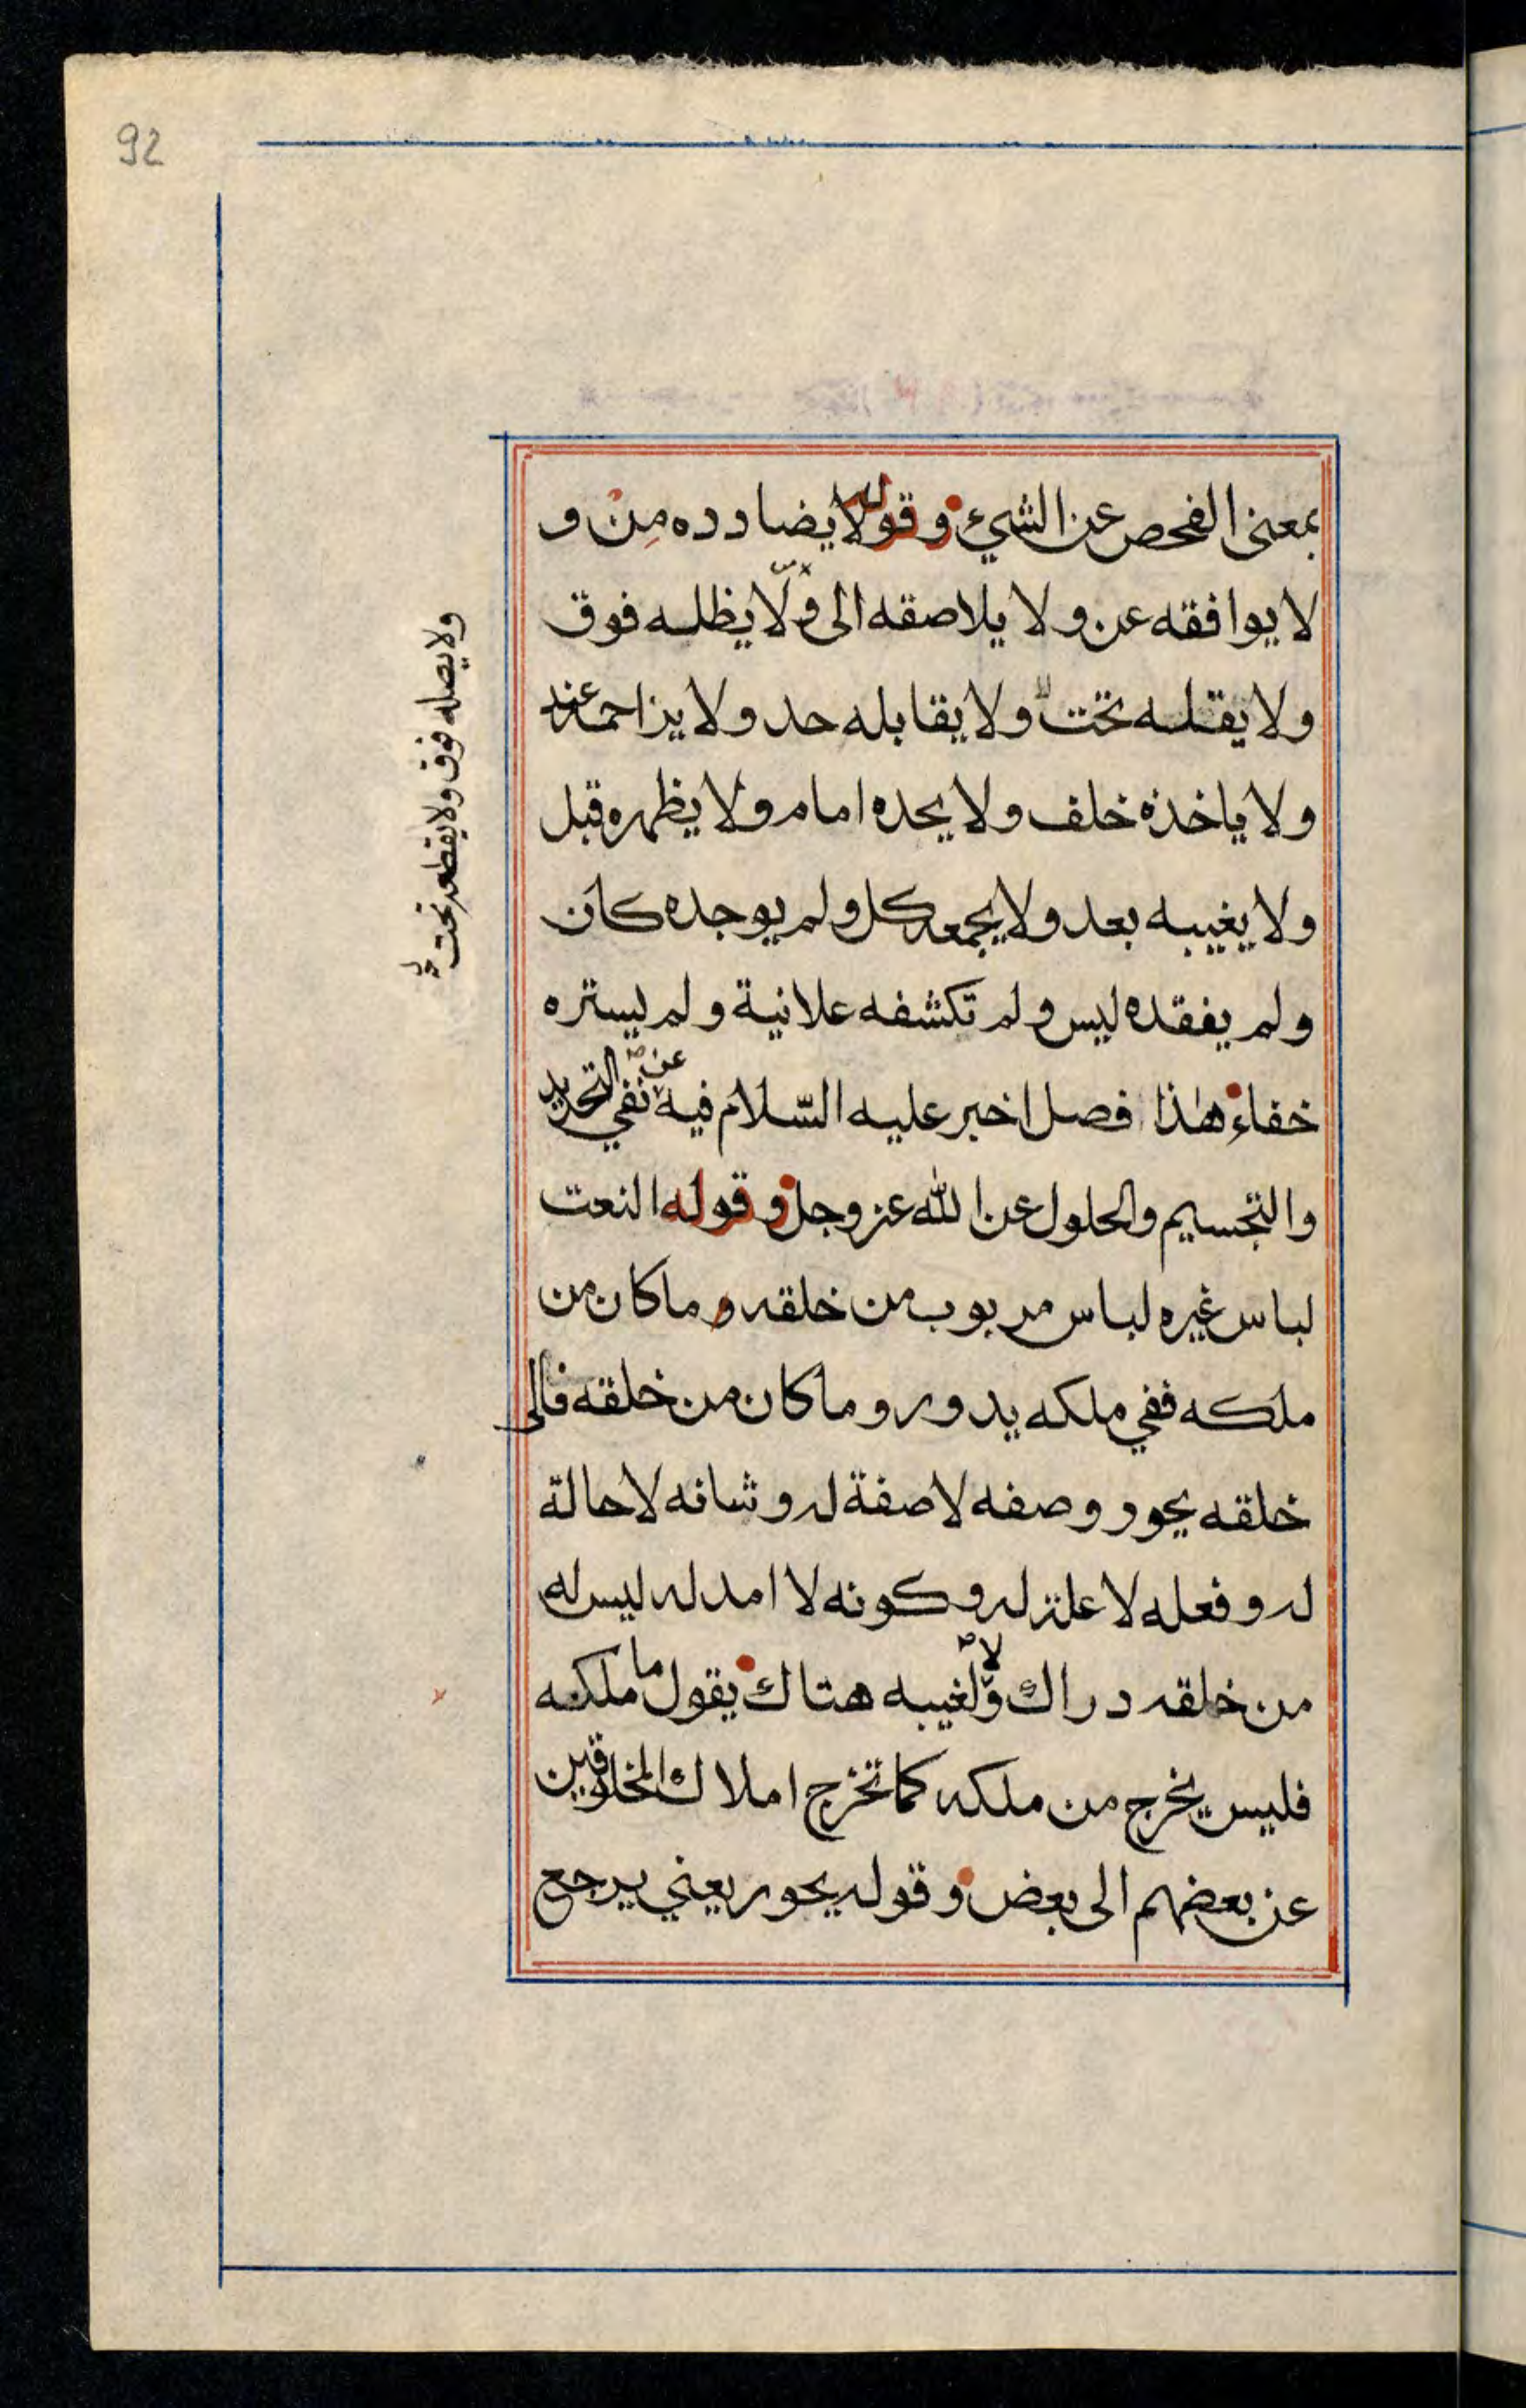 92
بمعنى الفحص عن الشيء وقوله لا يضادده من و
لا يوافقه عن ولا يلاصقه الى ولا يظله فوق
ولا يقله تحت ولا يقابله حد ولا يزاحمه عند
ولا ياخذه خلف ولا يحده امام ولا يظهره قبل
ولا يغيبه بعد ولا يجمعه كل ولم يوجده كان
ولم يفقده ليس ولم تكشفه علانية ولم يستره
خفاء هذا فصل اخبر عليه السّلام فيه عن نفي التحديد
والتجسيم والحلول عن الله عز وجل وقوله النعت
لباس غيره لباس مربوب من خلقه وما كان من
ملكه ففي ملكه يدور وما كان من خلقه فالى
خلقه يحور وصفه لا صفة له وشانه لا حالة
له وفعله لا علة له وكونه لا امد له ليس له
من خلقه دراك ولا لغيبه هتاك يقول ما ملكه
فليس يخرج من ملكه كما تخرج املاك المخلوقين
عن بعضهم الى بعض وقوله يحور يعني يرجع
ولا يصله فوق ولا يقطعه تحت